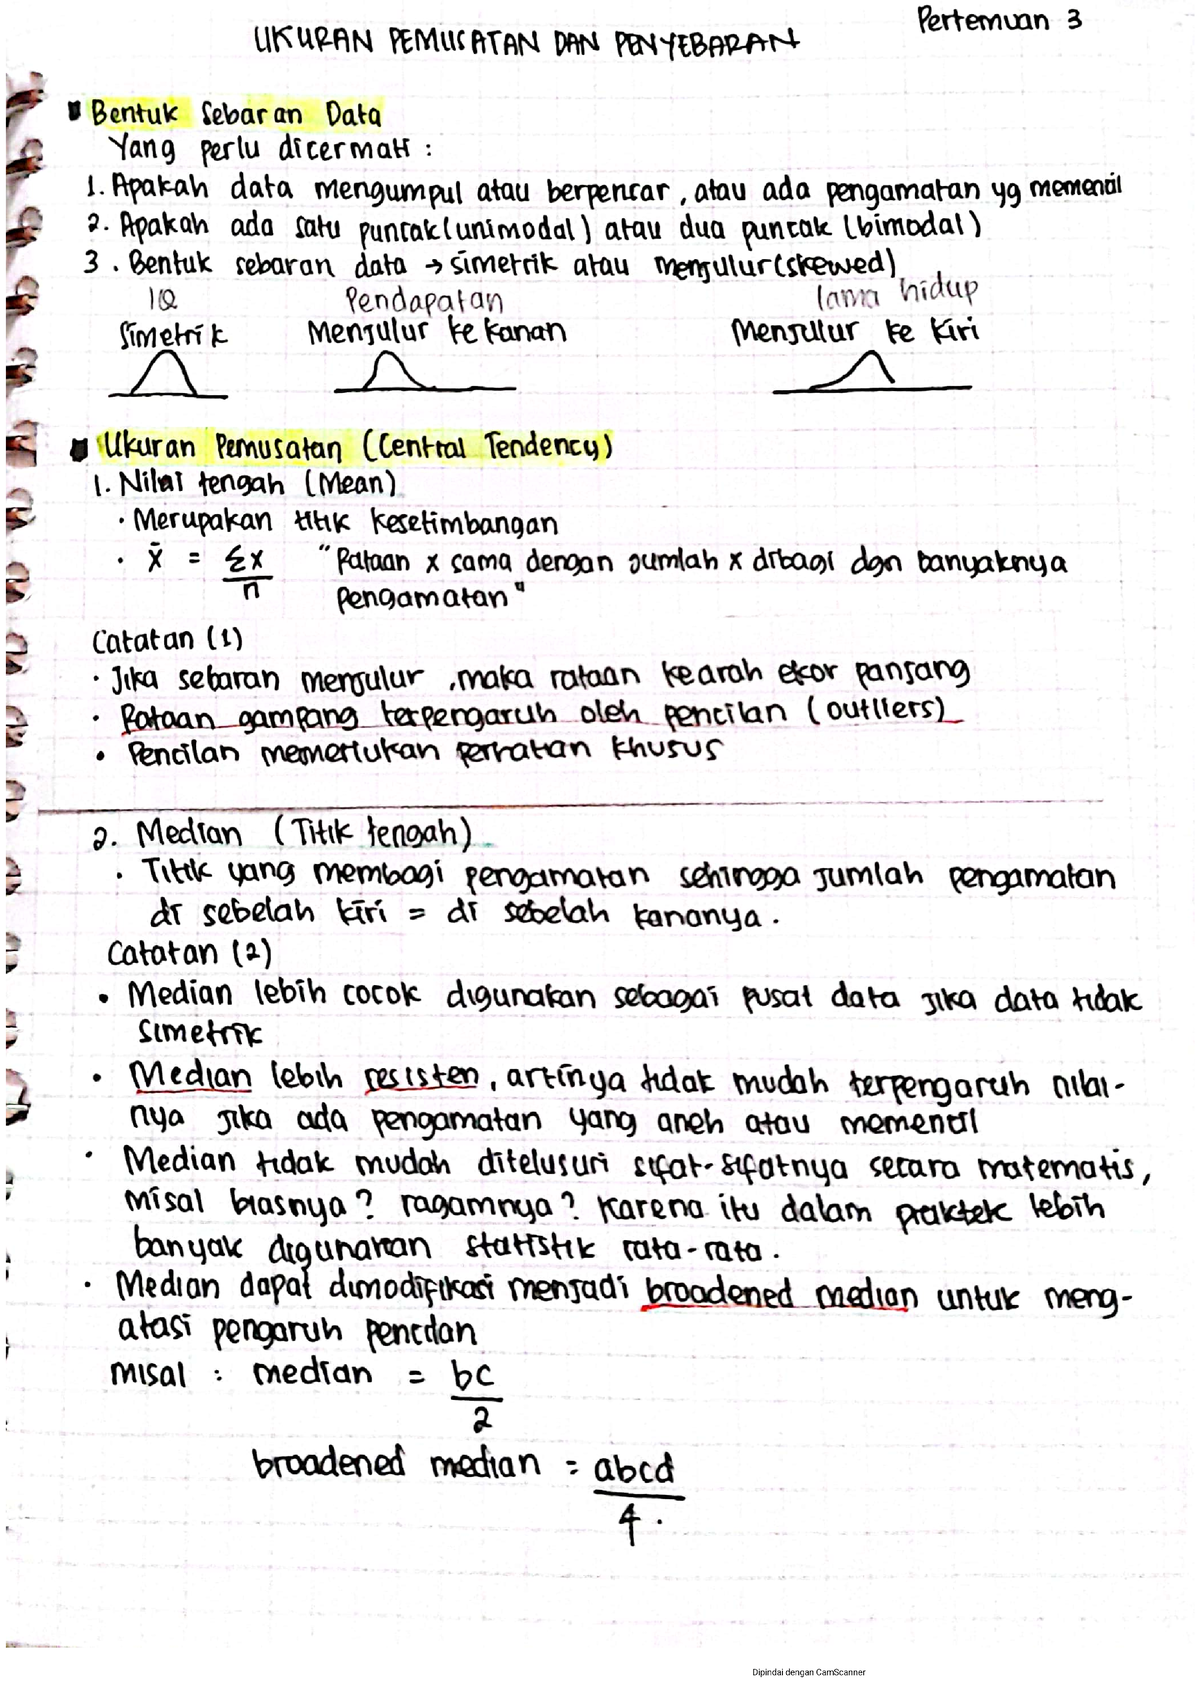 Pertemuan 3
UKURAN PEMUSATAN DAN PENYEBARAN
Bentuk Sebaran Data
Yang perlu dicermati :
1. Apakah data mengumpul atau berpencar, atau ada pengamatan yg memencil
2. Apakah ada satu puncak (unimodal) atau dua puncak (bimodal)
3. Bentuk sebaran data → simetrik atau menjulur (skewed)
IQ Pendapatan lama hidup
Simetrik Menjulur ke kanan Menjulur ke kiri
Ukuran Pemusatan (Central Tendency)
1. Nilai tengah (Mean)
· Merupakan titik kesetimbangan
· x̄ = Σx / n "Rataan x sama dengan jumlah x dibagi dgn banyaknya
pengamatan"
Catatan (1)
· Jika sebaran menjulur, maka rataan kearah ekor panjang
· Rataan gampang terpengaruh oleh pencilan (outliers)
• Pencilan memerlukan perhatian khusus
2. Median (Titik tengah)
· Titik yang membagi pengamatan sehingga jumlah pengamatan
di sebelah kiri = di sebelah kananya.
Catatan (2)
• Median lebih cocok digunakan sebagai pusat data jika data tidak
simetrik
• Median lebih resisten, artinya tidak mudah terpengaruh nilai-
nya jika ada pengamatan yang aneh atau memencil
· Median tidak mudah ditelusuri sifat-sifatnya secara matematis,
misal biasnya? ragamnya? Karena itu dalam praktek lebih
banyak digunakan statistik rata-rata.
· Median dapat dimodifikasi menjadi broadened median untuk meng-
atasi pengaruh pencilan
misal : median = bc
2
broadened median = abcd
4.
Dipindai dengan CamScanner